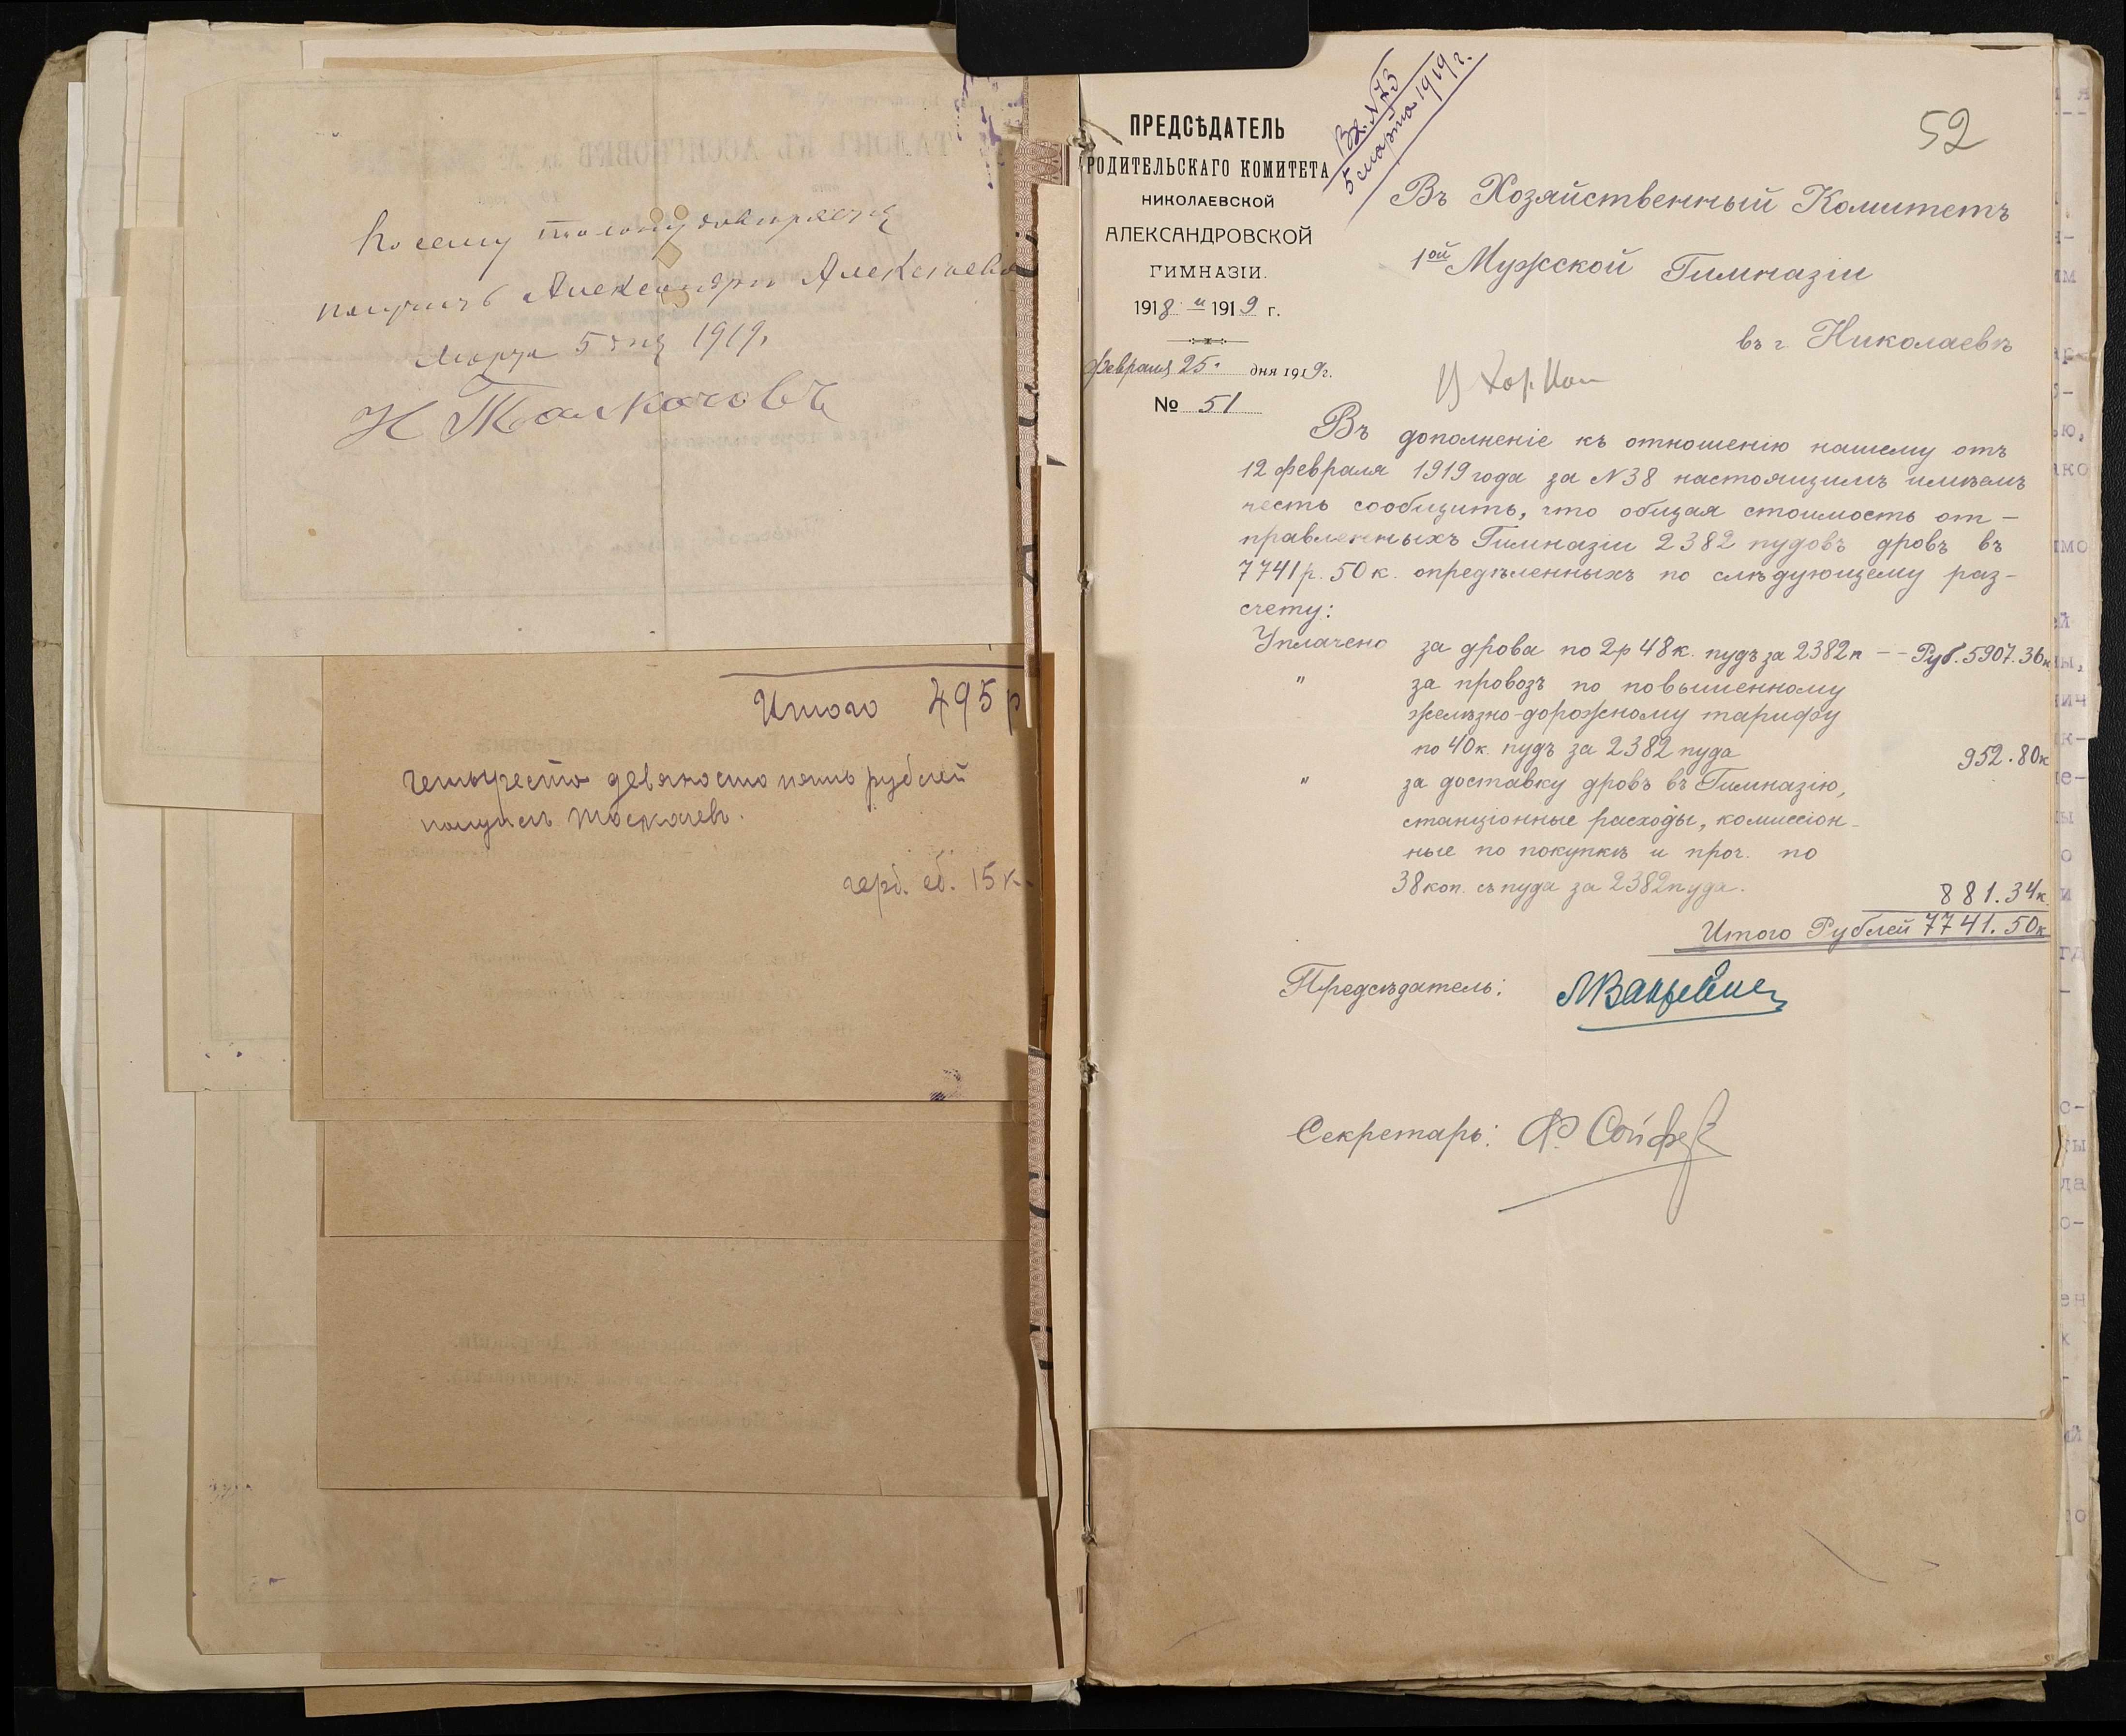 По сему талону доверяется
получить Александру Алексеевичу
Марта 5 дня 1919.
Н Толкачовъ
Итого 495 р
четыреста девяносто пять рублей
получилъ
герб. сб. 15 к.
Вх. N 73
5 марта 1919 г.
52
ПРЕДСѢДАТЕЛЬ
РОДИТЕЛЬСКАГО КОМИТЕТА
НИКОЛАЕВСКОЙ
АЛЕКСАНДРОВСКОЙ
ГИМНАЗІИ.
1918 и 1919 г.
Февраля 25 дня 1919 г.
№ 51
Въ Хозяйственный Комитетъ
1ой Мужской Гимназіи
въ г. Николаевѣ
Въ дополненіе къ отношенію нашему отъ
12 февраля 1919 года за N 38 настоящимъ имѣемъ
честь сообщить, что общая стоимость от-
правленныхъ Гимназіи 2382 пудовъ дровъ въ
7741 р. 50 к. опредѣленныхъ по слѣдующему раз-
счету:
Уплачено за дрова по 2р 48к. пудъ за 2382 п -- Руб. 5907.36к
" за провозъ по повышенному
желѣзно-дорожному тарифу
по 40к. пудъ за 2382 пуда 952.80к
" за доставку дровъ въ Гимназію,
станціонные расходы, комиссіон-
ные по покупкѣ и проч. по
38 коп. съ пуда за 2382 пуда. 881.34к.
Итого Рублей 7741.50к
Предсѣдатель:
Секретарь: